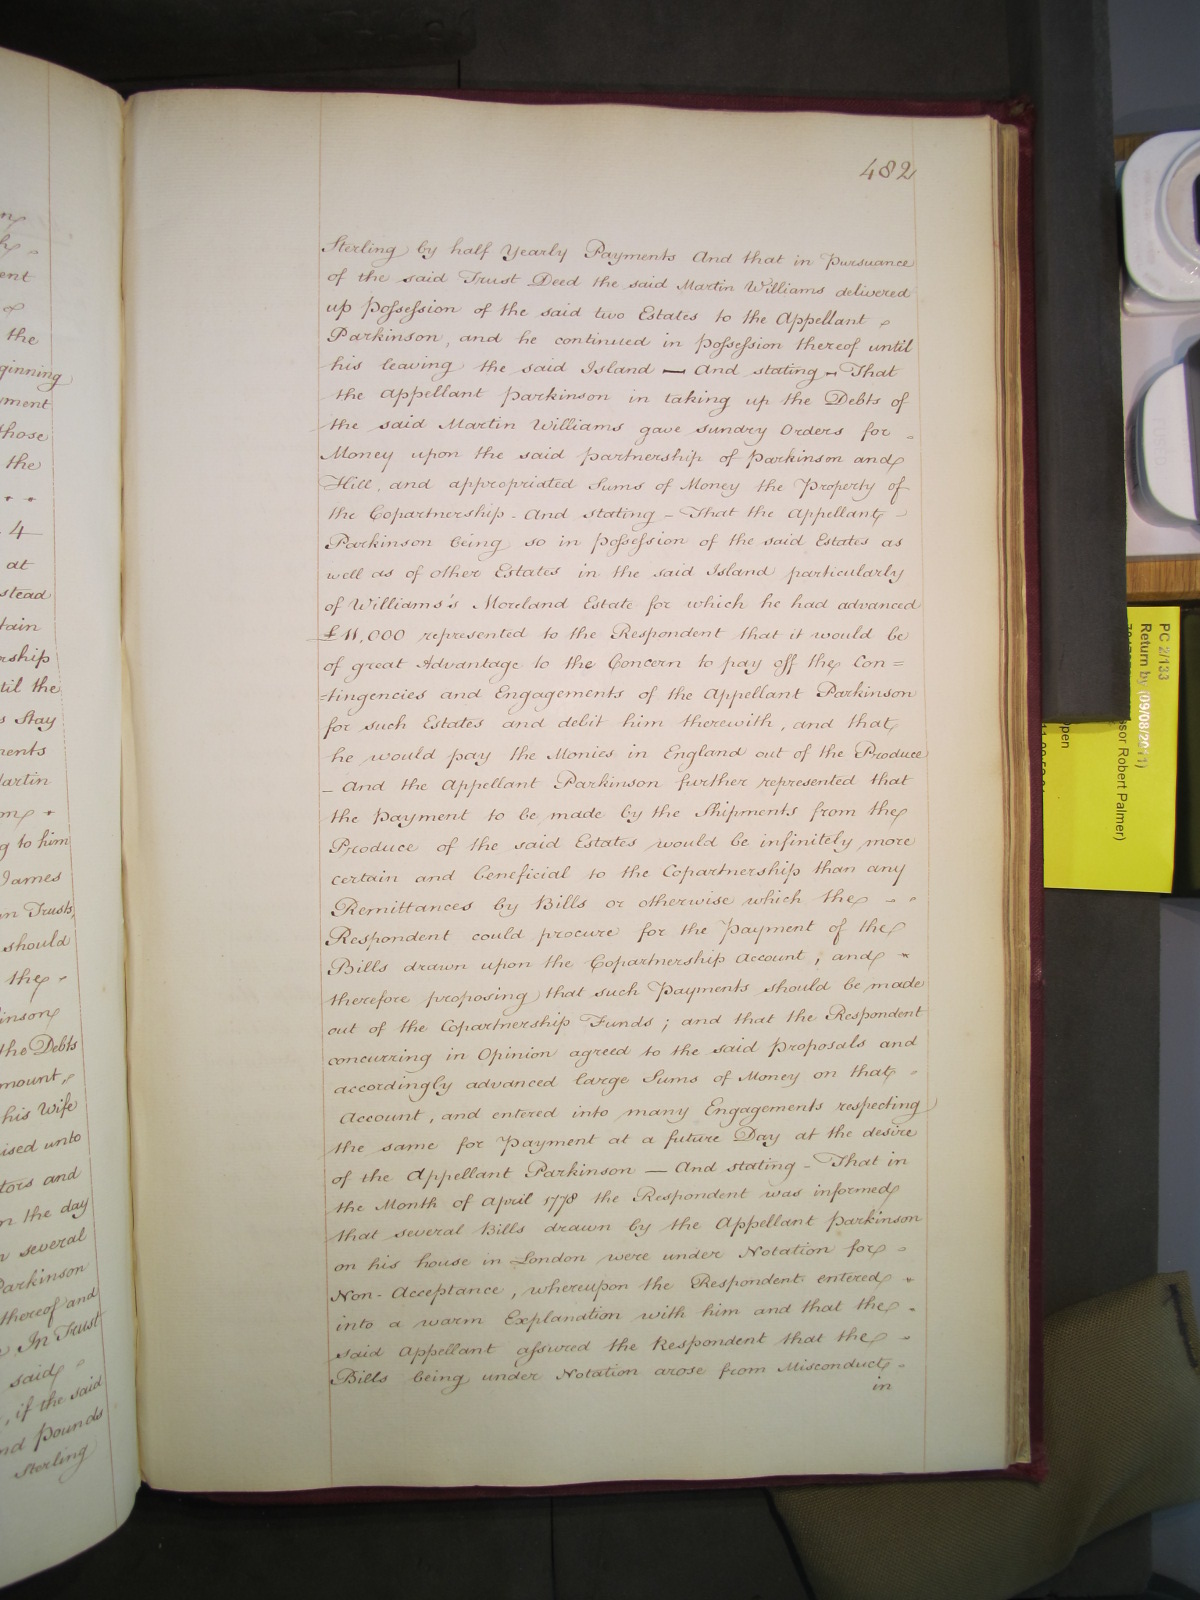 482
Sterling by half Yearly Payments And that in Pursuance
of the said Trust Deed the said Martin Williams delivered
up Possession of the said two Estates to the Appellant
Parkinson, and he continued in possession thereof until
his leaving the said Island — And stating - That
the Appellant Parkinson in taking up the Debts of
the said Martin Williams gave sundry Orders for
Money upon the said partnership of Parkinson and
Hill, and appropriated Sums of Money the Property of
the Copartnership - And stating - That the Appellant
Parkinson being so in possession of the said Estates as
well as of other Estates in the said Island particularly
of Williams's Moreland Estate for which he had advanced
£11,000 represented to the Respondent that it would be
of great Advantage to the Concern to pay off the Con=
=tingencies and Engagements of the Appellant Parkinson
for such Estates and debit him therewith, and that
he would pay the Monies in England out of the Produce
- And the Appellant Parkinson further represented that
the Payment to be made by the Shipments from the
Produce of the said Estates would be infinitely more
certain and beneficial to the Copartnership than any
Remittances by Bills or otherwise which the - -
Respondent could procure for the Payment of the
Bills drawn upon the Copartnership Account, and
therefore proposing that such Payments should be made
out of the Copartnership Funds; and that the Respondent
concurring in Opinion agreed to the said Proposals and
accordingly advanced large Sums of Money on that
Account, and entered into many Engagements respecting
the same for Payment at a future Day at the desire
of the Appellant Parkinson — And stating - That in
the Month of April 1778 the Respondent was informed
that several Bills drawn by the Appellant Parkinson
on his house in London were under Notation for
Non-Acceptance, whereupon the Respondent entered
into a warm Explanation with him and that the
said Appellant assured the Respondent that the
Bills being under Notation arose from Misconduct
in
ent
the
ginning
ment
those
the
4
at
stead
tain
rship
til the
s Stay
ments
Martin
g to him
James
in Trusts,
should
the -
inson
the Debts
mount,
his Wife
ised unto
tors and
n the day
n several
Parkinson
thereof and
In Trust
said
, if the said
nd Pounds
Sterling
PC 2/133
Return by (09/08/2011)
ssor Robert Palmer)
open